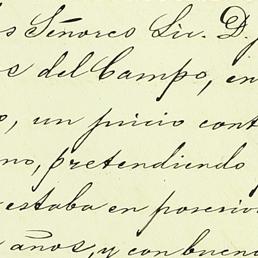 s Señores Lic. D. J
s del Campo, en
o, un juicio cont
no, pretendiendo
estaba en posesió
años, y con buena